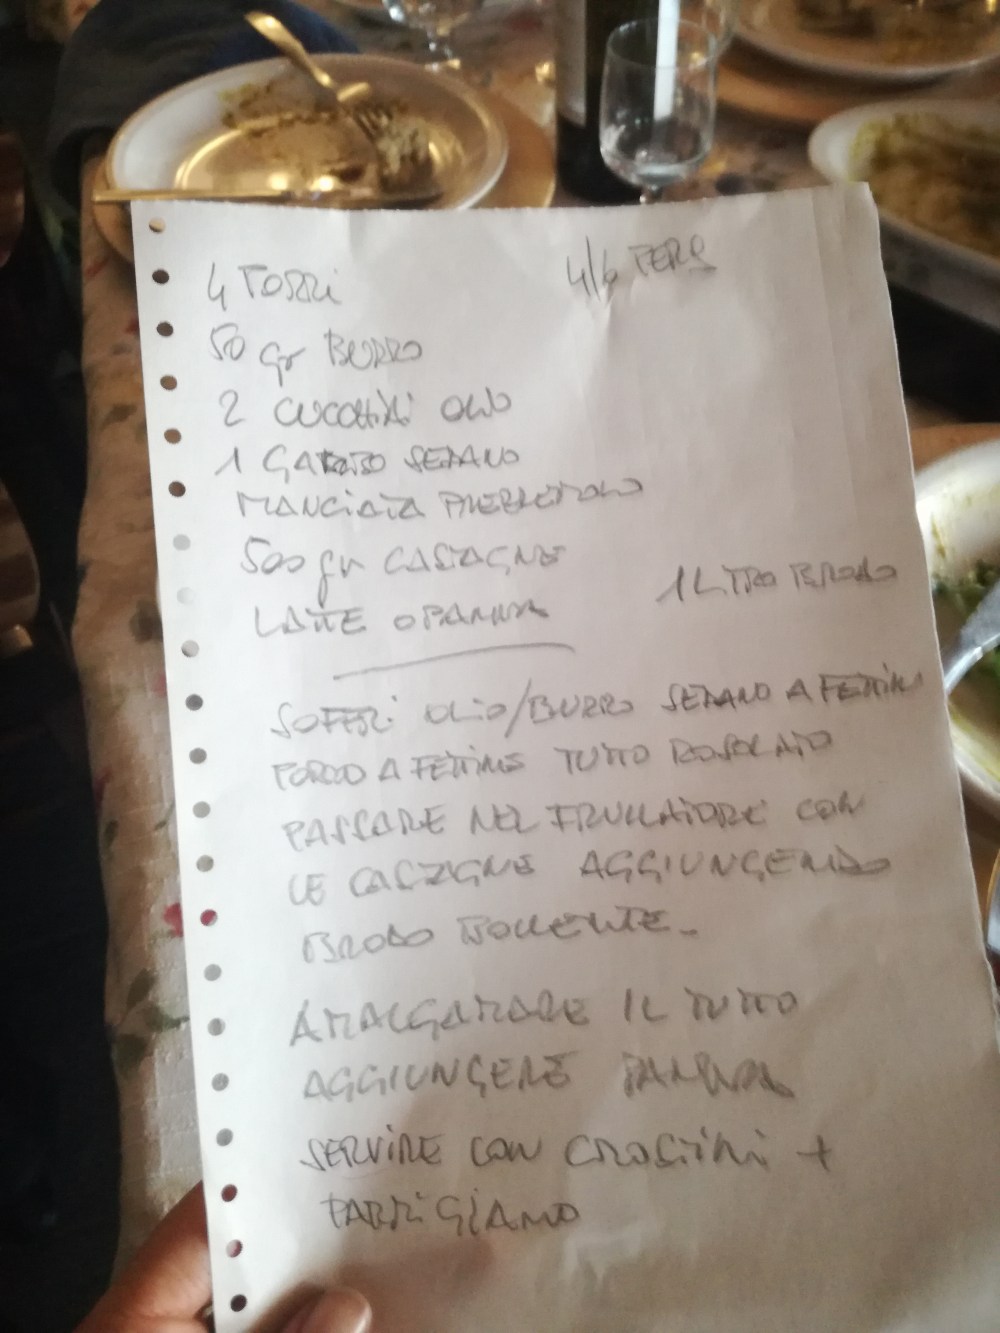 4 PORRI 4/6 PERS
50 gr BURRO
2 CUCCHIAI OLIO
1 GAMBO SEDANO
MANCIATA PREZZEMOLO
500 gr CASTAGNE
LATTE O PANNA 1 LITRO BRODO
SOFFRI OLIO/BURRO SEDANO A FETTINE
PORRO A FETTINE TUTTO ROSOLATO
PASSARE NEL FRULLATORE CON
LE CASTAGNE AGGIUNGENDO
BRODO BOLLENTE -
AMALGAMARE IL TUTTO
AGGIUNGERE PANNA
SERVIRE CON CROSTINI +
PARMIGIANO